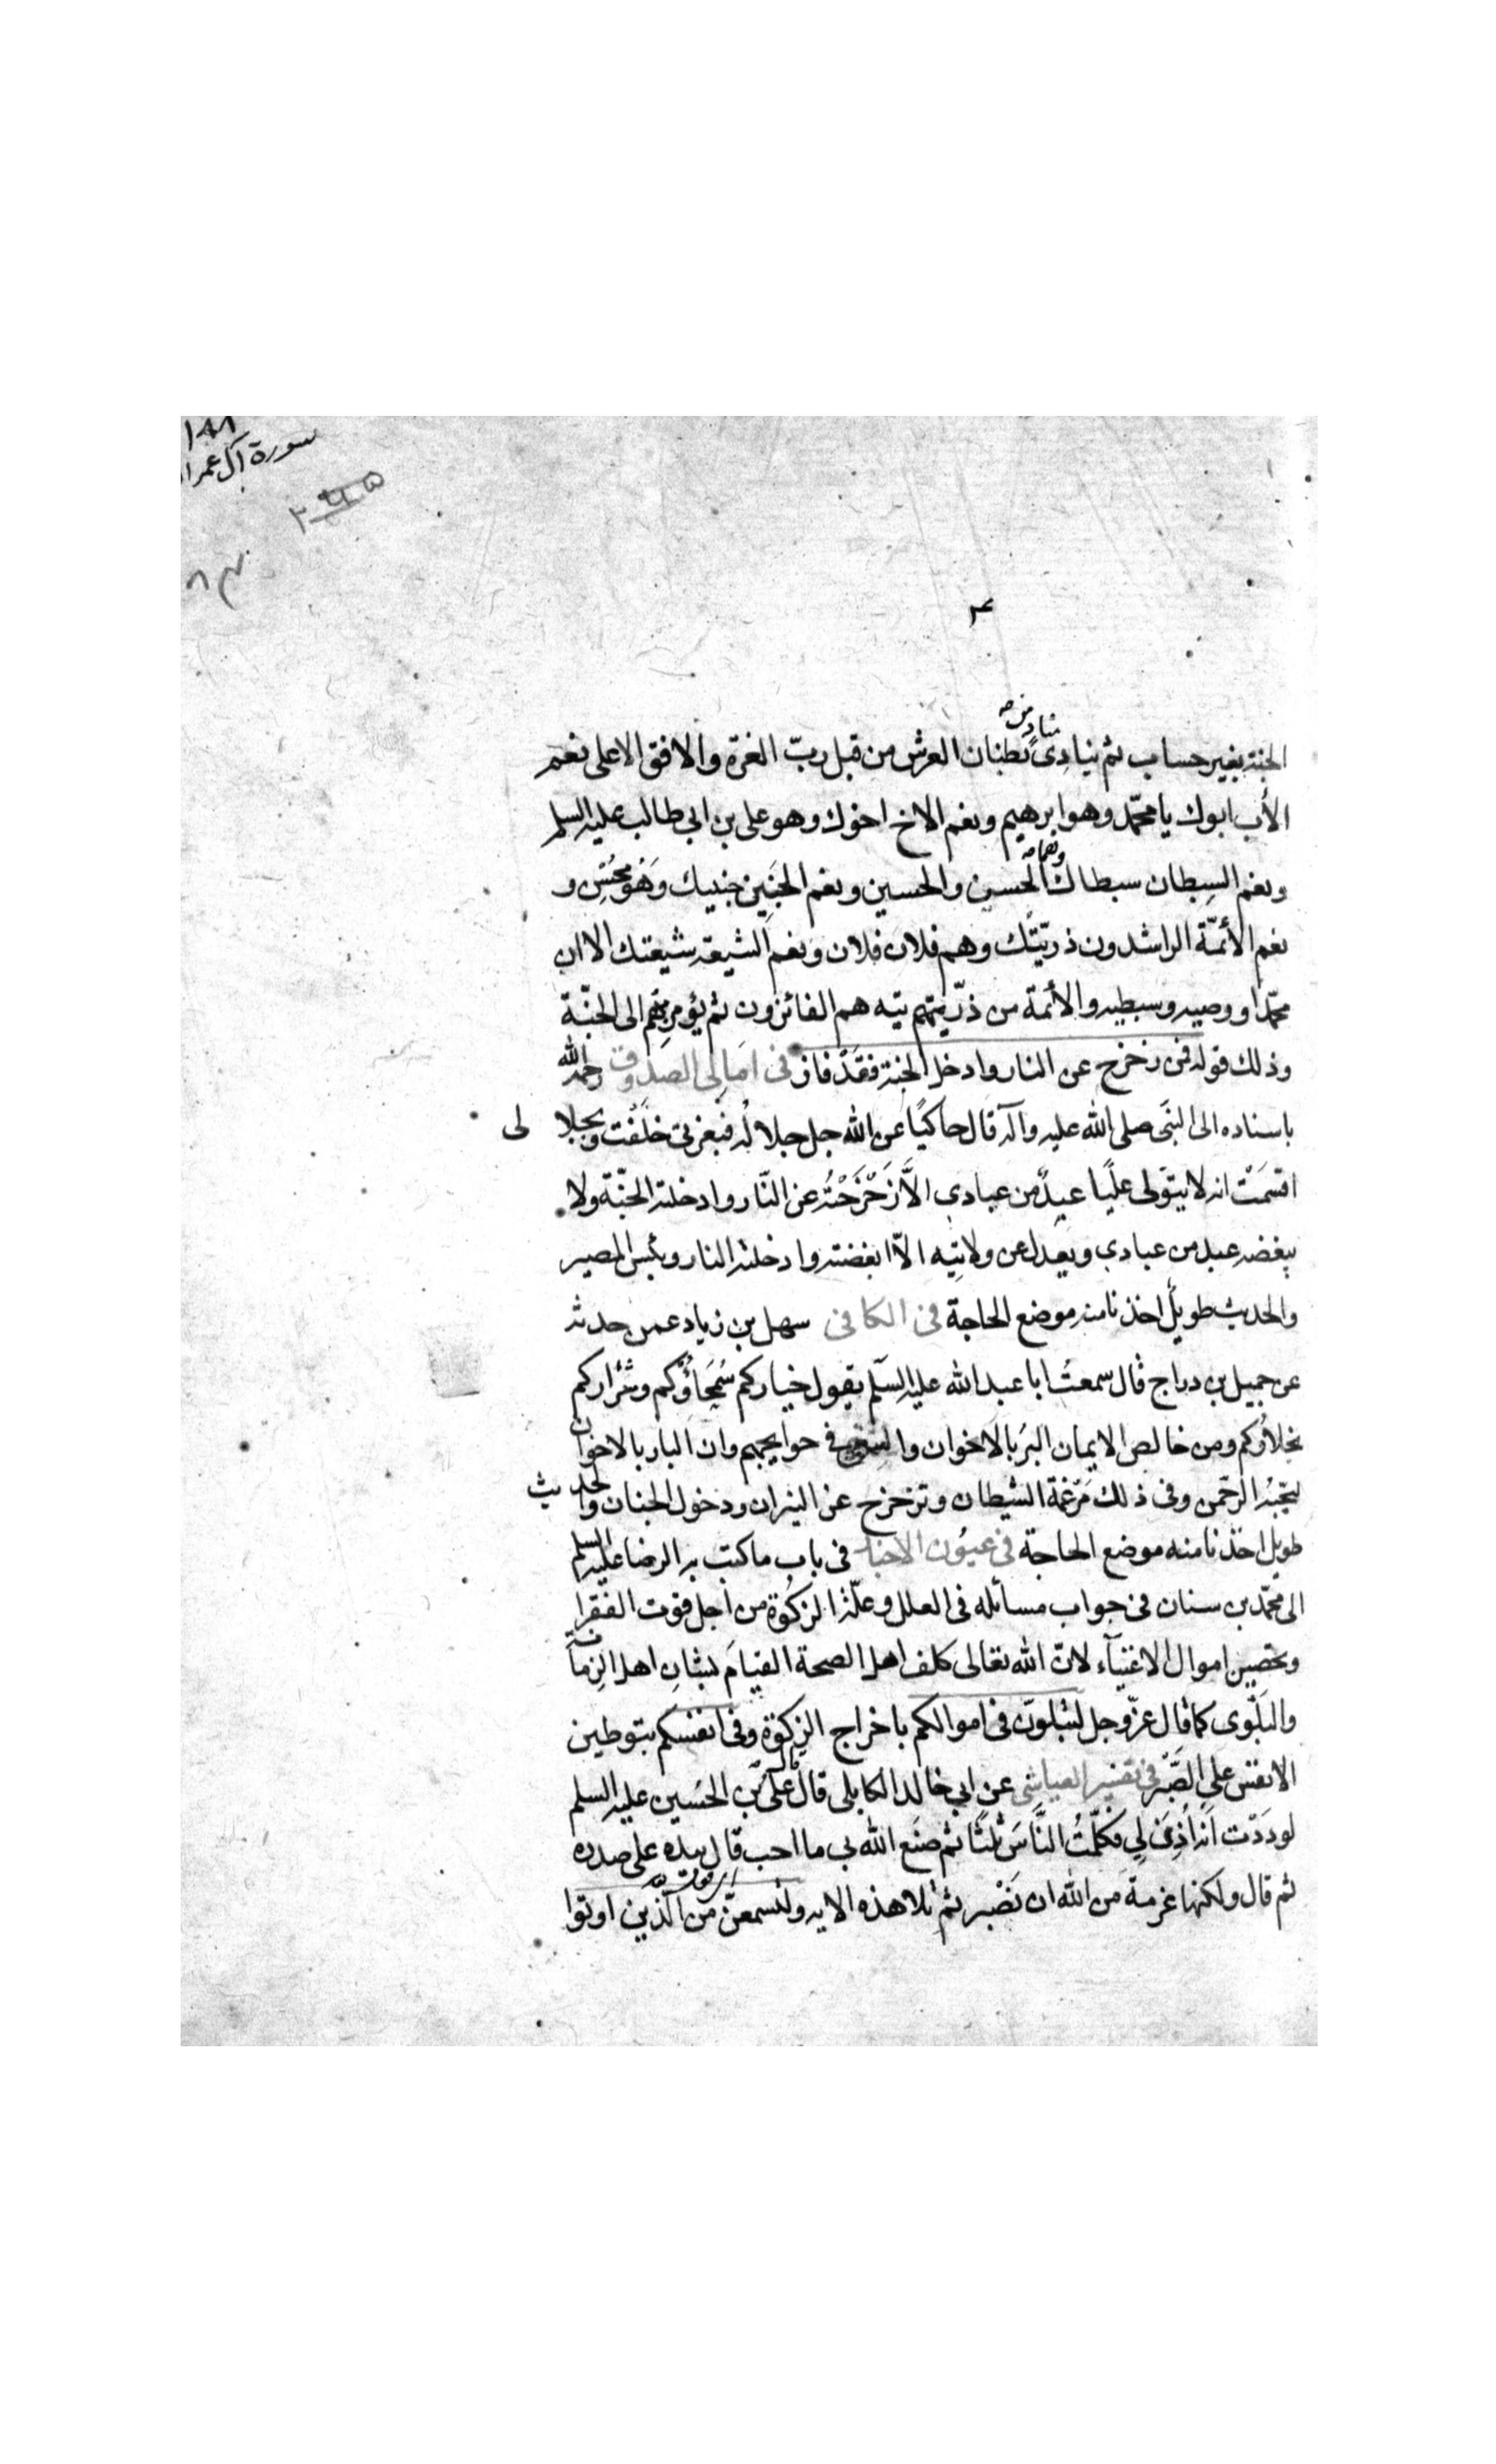 ١٨٨
سورة آل عمرا
مناد من
الجنة بغير حساب ثم ينادى بطنان العرش من قبل ربّ العزة والافق الاعلى نعم
الأب ابوك يا محمّد وهو ابرهيم ونعم الاخ اخوك وهو على بن ابى طالب عليه السلم
وهما
ونعم السبطان سبطاك الحسن والحسين ونعم الجنين جنينك وهو محسن و
نعم الأئمّة الراشدون ذريّتك وهم فلان فلان ونعم الشيعة شيعتك الا ان
محمّدا ووصيه وسبطيه والأئمة من ذرّيته هم الفائزون ثم يؤمر بهم الى الجنّة
وذلك قوله فمن زحزح عن النار وادخل الجنة فقد فاز فى امالى الصدوق رحمه الله
باسناده الى النبى صلى الله عليه وآله قال حاكيًا عن الله جل جلاله فبعزتى حلفت وبجلا لى
اقسمت انه لا يتولى عليًا عبدٌ من عبادى الاّ زحزحته عن النّار وادخلته الجنّة ولا
يبغضه عبد من عبادى ويعدل عن ولايته الاّ ابغضته وادخلته النار وبئس المصير
والحديث طويل اخذنا منه موضع الحاجة فى الكافى سهل بن زياد عمن حدثه
عن جميل بن دراج قال سمعت ابا عبد الله عليه السلم يقول خياركم سمحاؤكم وشراركم
بخلاؤكم ومن خالص الايمان البر بالاخوان والسعى فى حوايجهم وان البار بالاخوان
ليحبّه الرحمن وفى ذلك مرغمة الشيطان وتزحزح عن النيران ودخول الجنان والحديث
طويل اخذنا منه موضع الحاجة فى عيون الاخبار فى باب ما كتب به الرضا عليه السلم
الى محمّد بن سنان فى جواب مسائله فى العلل وعلّة الزكوة من اجل قوت الفقرا
وتحصين اموال الاغنيآء لان الله تعالى كلف اهل الصحة القيام بشان اهل الزمانة
والبلوى كما قال عزّ وجل لتبلون فى اموالكم باخراج الزكوة وفى انفسكم بتوطين
الانفس على الصّبر فى تفسير العياشى عن ابى خالد الكابلى قال قال على بن الحسين عليه السلم
لوددت انه اذن لى فكلّمت النّاس ثلثا ثم صنع الله بى ما احب قال بيده على صدره
ثم قال ولكنها عزمة من الله ان نصبر ثم تلا هذه الايه ولتسمعنّ من الّذين اوتوا